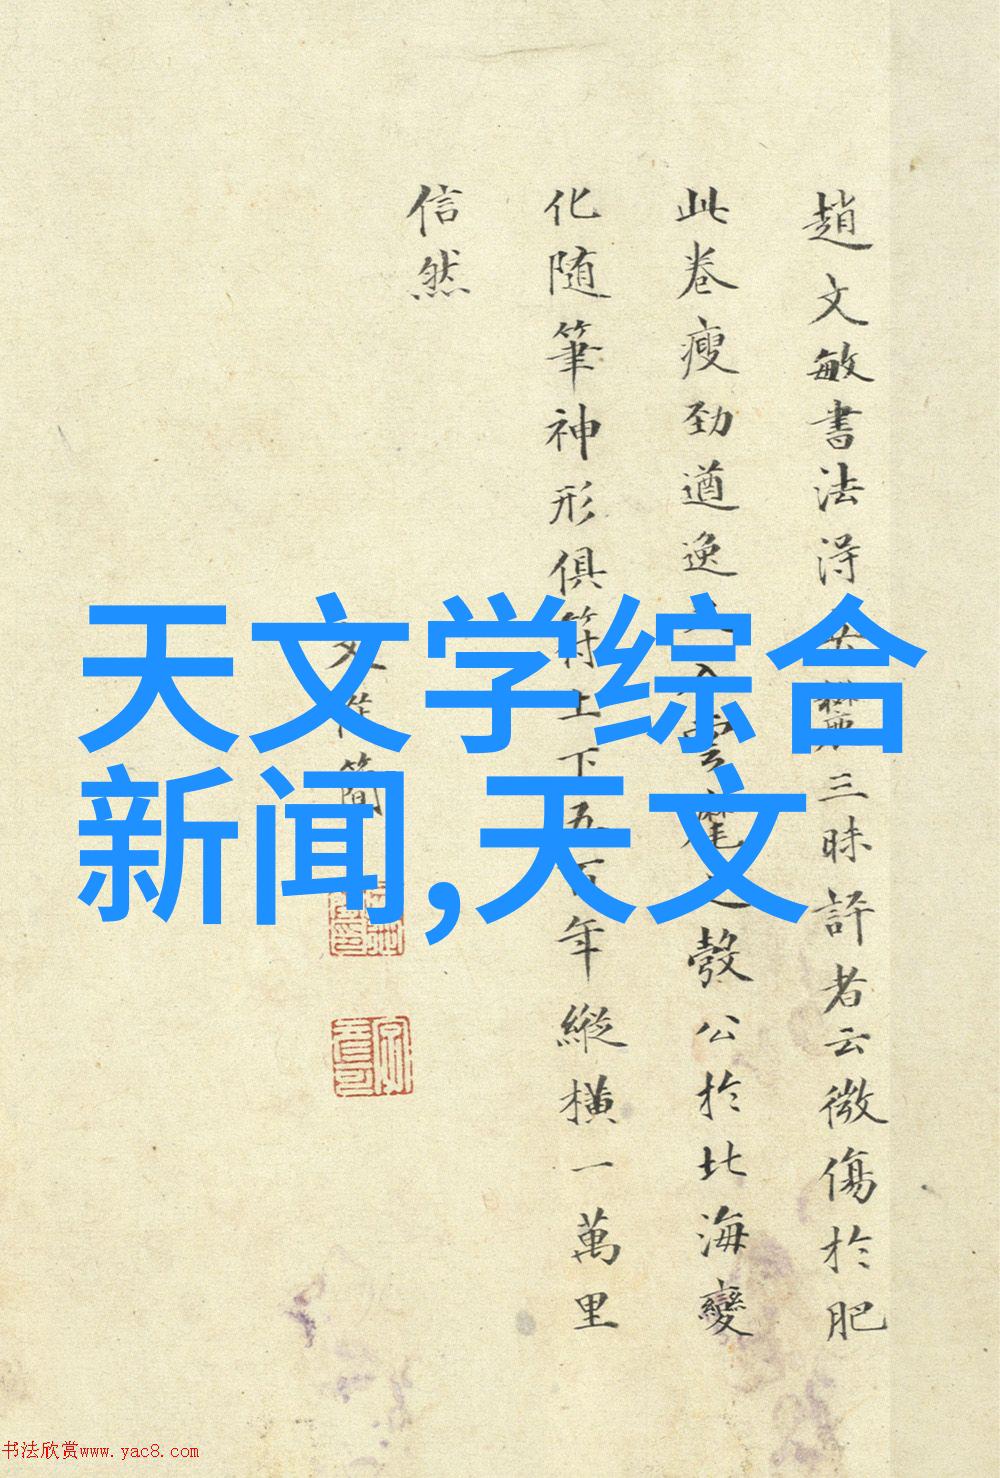 趙文敏書法得三昧評者云微傷於肥
此卷瘦勁遒逸入雲麾之彀公於北海變
化随筆神形俱符上下五百年縱橫一萬里
信然
文簡
天文学综合
新闻,天文
书法欣赏www.yac8.com